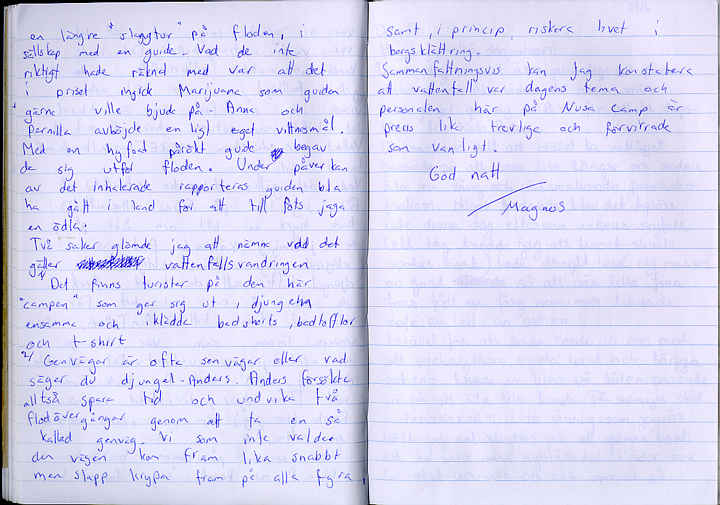 en längre "slapptur" på floden, i
sällskap med en guide. Vad de inte
riktigt hade räknat med var att det
i priset ingick Marijuana som guiden
gärna ville bjuda på. Anna och
Pernilla avböjde enligt eget vittnesmål.
Med en hyfsad pårökt guide begav
de sig utför floden. Under påverkan
av det inhalerade rapporteras guiden bla
ha gått i land för att till fots jaga
en ödla.
Två saker glömde jag att nämna vad det
gäller vattenfallsvandringen
Det finns turister på den här
"campen" som ger sig ut i djungeln
ensamma och iklädda badshorts, badtofflor
och t-shirt
2/ Genvägar är ofta senvägar eller vad
säger du djungel-Anders. Anders försökte
alltså spara tid och undvika två
flodövergångar genom att ta en så
kallad genväg. Vi som inte valde
den vägen kom fram lika snabbt
men slapp krypa fram på alla fyra,
samt, i princip, riskera livet i
bergsklättring.
Sammanfattningsvis kan jag konstatera
att vattenfall var dagens tema och
personalen här på Nusa Camp är
precis lika trevliga och förvirrade
som vanligt.
God natt
Magnus